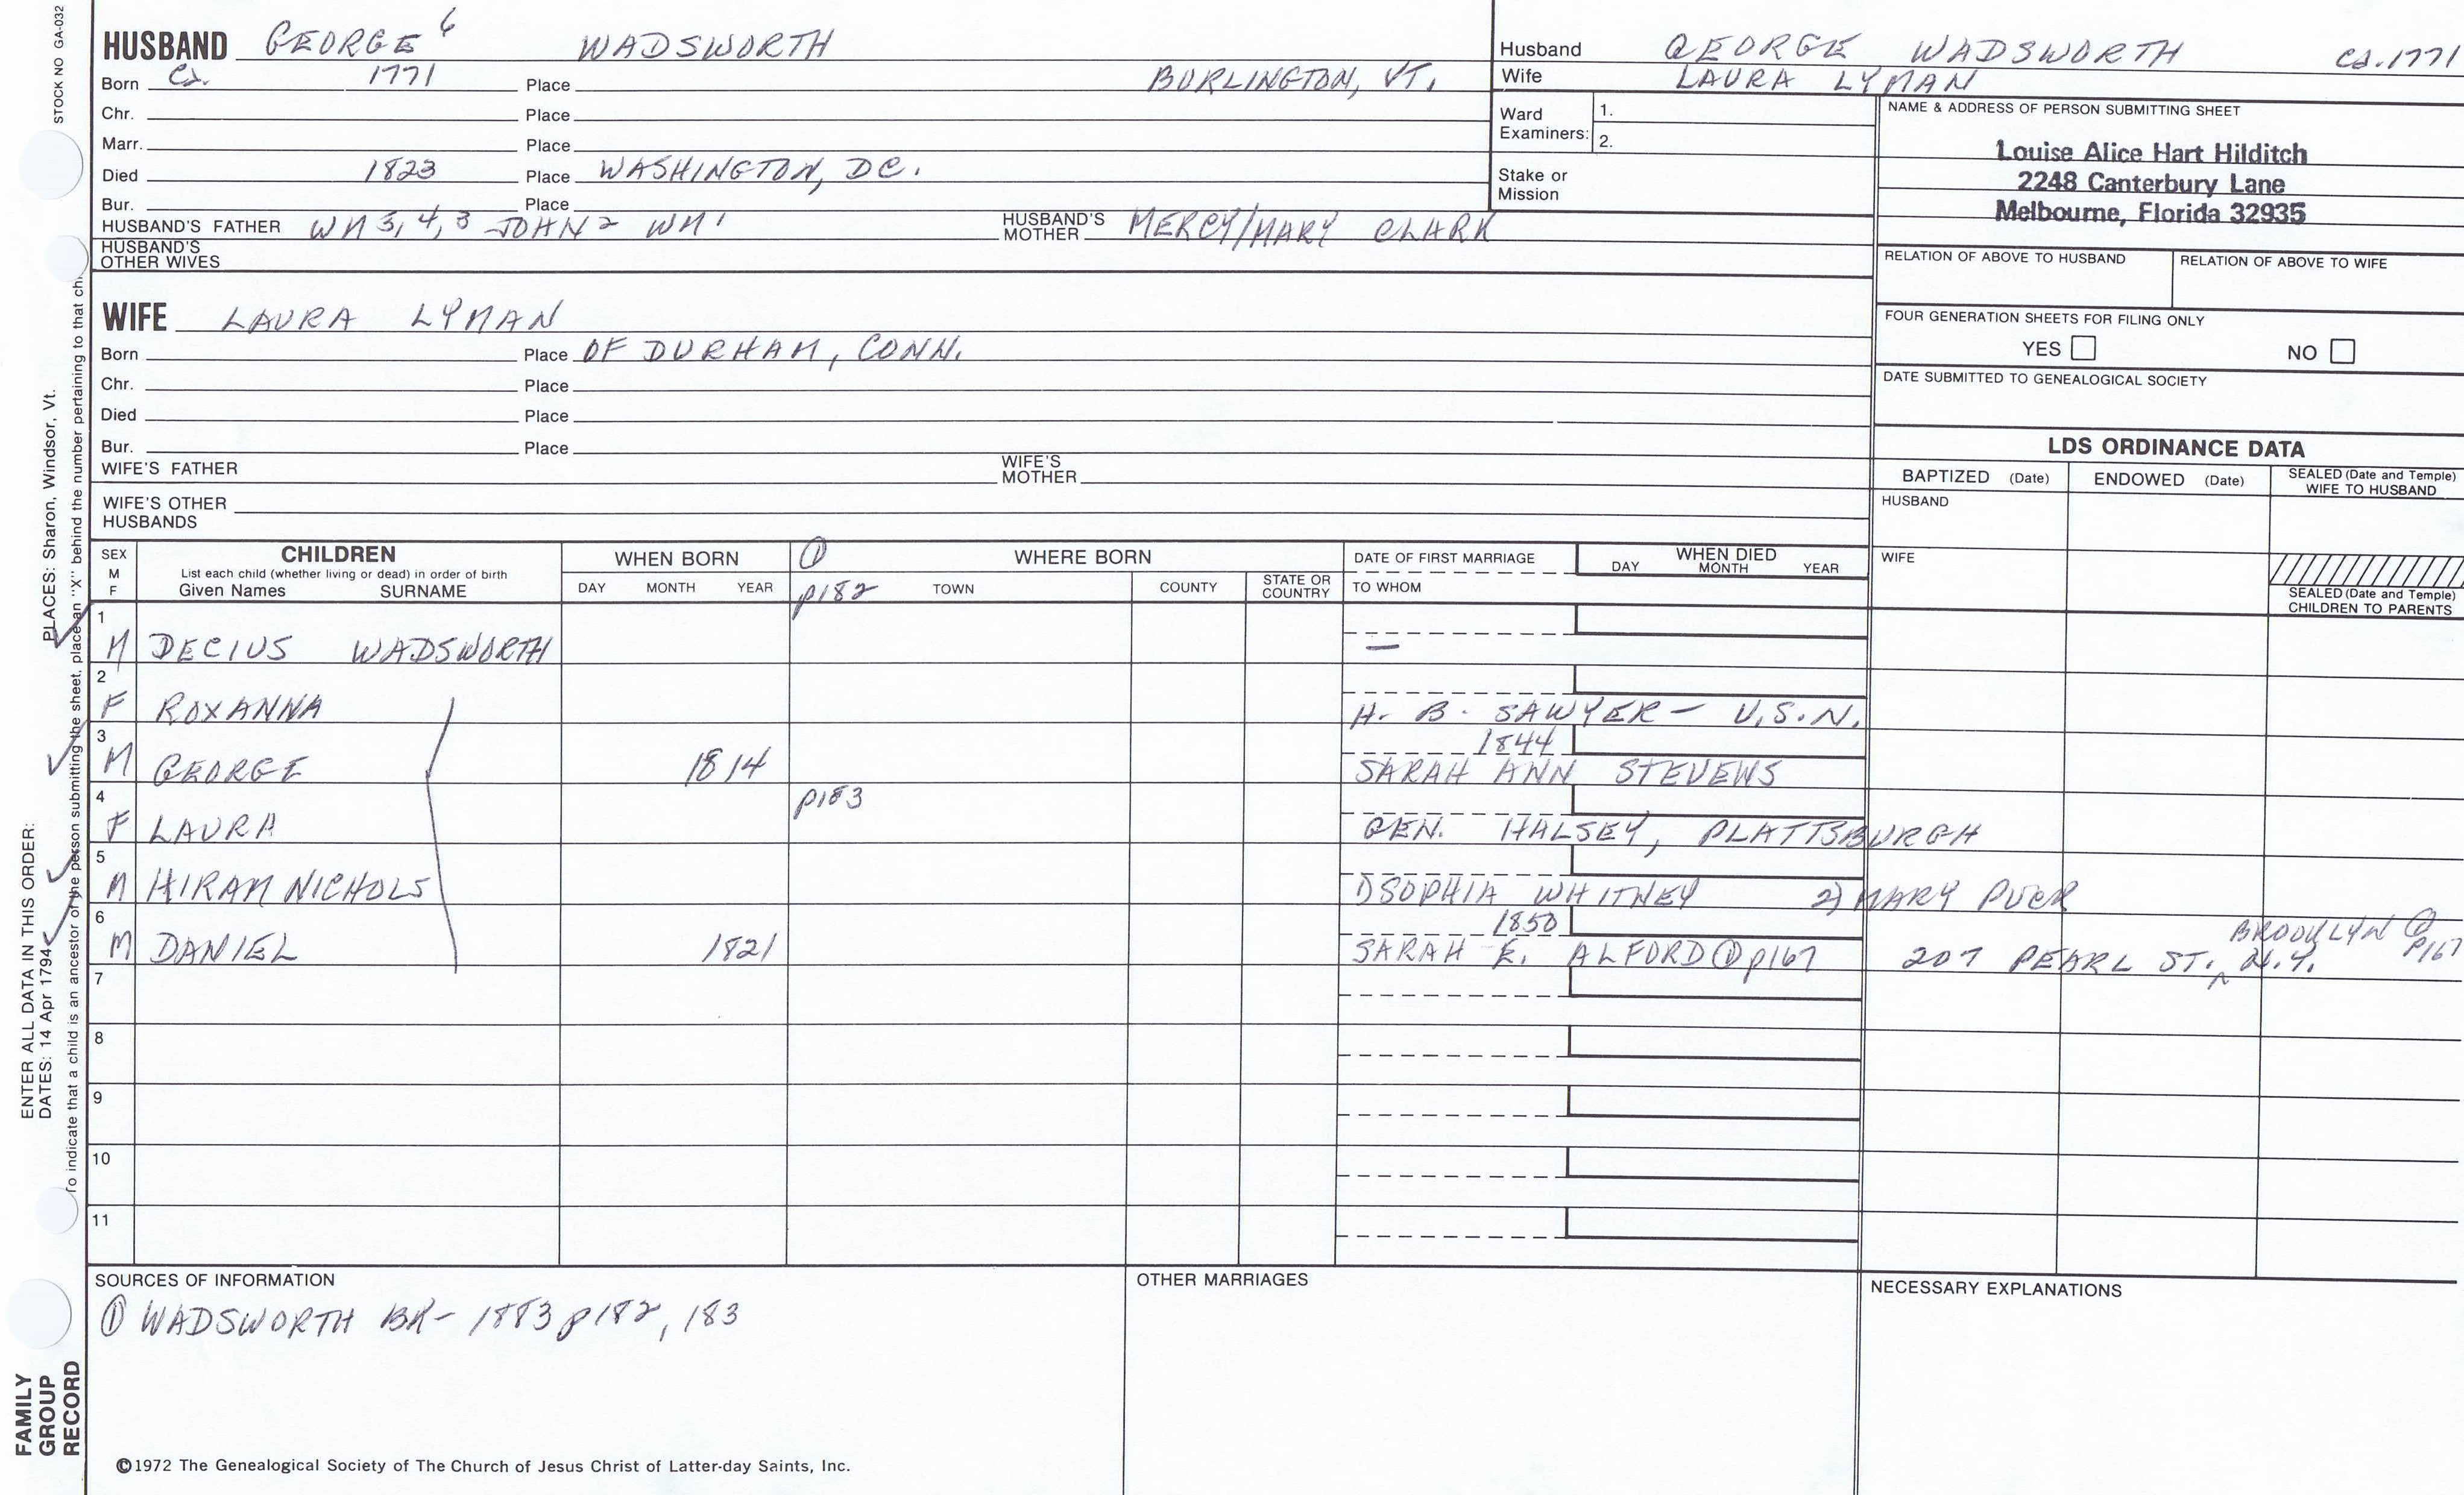 STOCK NO GA-032
HUSBAND GEORGE 6 WADSWORTH
Born Ca. 1771 Place BURLINGTON, VT.
Chr. Place
Marr. Place
Died 1823 Place WASHINGTON, DC.
Bur. Place
HUSBAND'S FATHER WM 5, 4, 3 JOHN 2 WM 1 HUSBAND'S MOTHER MERCY/MARY CLARK
HUSBAND'S OTHER WIVES
WIFE LAURA LYMAN
Born Place OF DURHAM, CONN.
Chr. Place
Died Place
Bur. Place
WIFE'S FATHER WIFE'S MOTHER
WIFE'S OTHER HUSBANDS
Husband GEORGE WADSWORTH Ca. 1771
Wife LAURA LYMAN
Ward Examiners: 1.
2.
Stake or Mission
NAME & ADDRESS OF PERSON SUBMITTING SHEET
Louise Alice Hart Hilditch
2248 Canterbury Lane
Melbourne, Florida 32935
RELATION OF ABOVE TO HUSBAND RELATION OF ABOVE TO WIFE
FOUR GENERATION SHEETS FOR FILING ONLY
YES NO
DATE SUBMITTED TO GENEALOGICAL SOCIETY
LDS ORDINANCE DATA
BAPTIZED (Date) ENDOWED (Date) SEALED (Date and Temple) WIFE TO HUSBAND
HUSBAND
WIFE
SEALED (Date and Temple) CHILDREN TO PARENTS
SEX M F CHILDREN WHEN BORN ① WHERE BORN DATE OF FIRST MARRIAGE WHEN DIED
List each child (whether living or dead) in order of birth
Given Names SURNAME DAY MONTH YEAR p182 TOWN COUNTY STATE OR COUNTRY TO WHOM DAY MONTH YEAR
1
M DECIUS WADSWORTH —
2
F ROXANNA H. B. SAWYER - U.S.N.
3 1844
M GEORGE 1814 SARAH ANN STEVENS
4 p183
F LAURA GEN. HALSEY, PLATTSBURGH
5
M HIRAM NICHOLS 1) SOPHIA WHITNEY 2) MARY
6 1850 BROOKLYN ① p167
M DANIEL 1821 SARAH E. ALFORD ① p167 207 PEARL ST. ^ N.Y.
7
8
9
10
11
SOURCES OF INFORMATION OTHER MARRIAGES NECESSARY EXPLANATIONS
① WADSWORTH BK - 1883 p182, 183
©1972 The Genealogical Society of The Church of Jesus Christ of Latter-day Saints, Inc.
FAMILY GROUP RECORD
ENTER ALL DATA IN THIS ORDER:
DATES: 14 Apr 1794 PLACES: Sharon, Windsor, Vt.
To indicate that a child is an ancestor of the person submitting the sheet, place an "X" behind the number pertaining to that ch